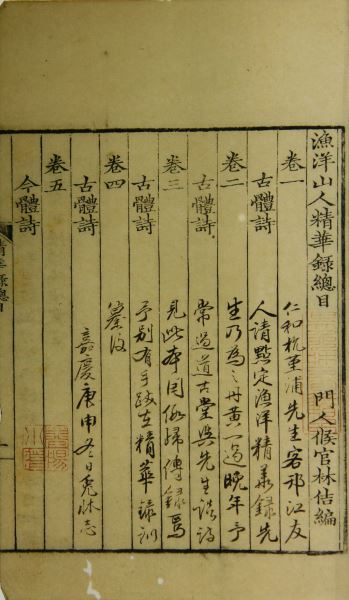 漁洋山人精華錄總目 門人候官林佶編
卷一 仁和杭堇浦先生客邗江友
古體詩 人請點定漁洋精華錄先
卷二 生乃為之丹黃一過晚年予
古體詩 常過道古堂與先生談詩
卷三 見此本因假歸傳錄焉
古體詩 予別有手跋在精華錄訓
卷四 纂後
古體詩 嘉慶庚申冬日兔牀志
卷五
今體詩
精華錄總目